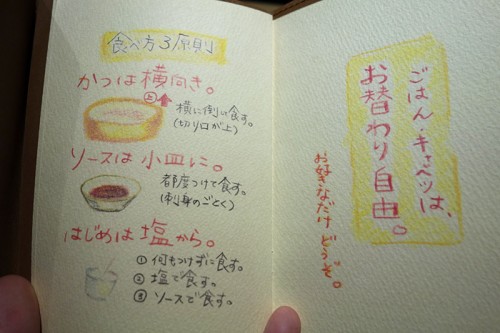 食べ方3原則
かつは横向き。
上
横に倒して食す。
(切り口が上)
ソースは小皿に。
都度つけて食す。
(刺身のごとく)
はじめは塩から。
① 何もつけずに食す。
② 塩で食す。
③ ソースで食す。
ごはん・キャベツは、
お替わり自由。
お好きなだけどうぞ。